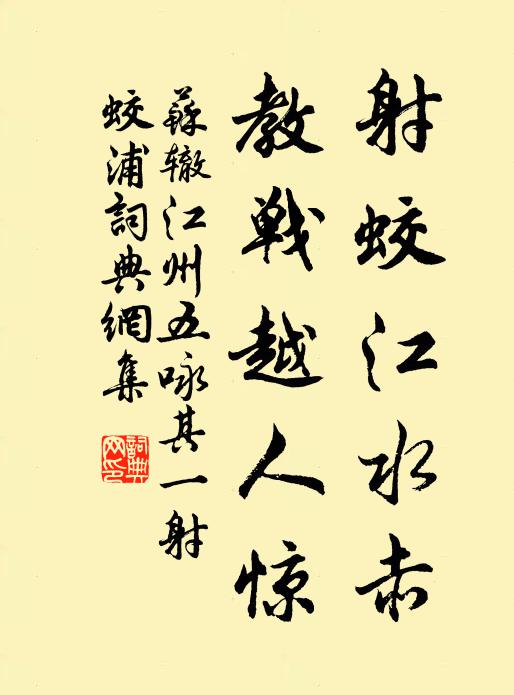 射蛟江水赤
教戦越人惊
蘇辙江州五咏其一射
蛟浦詞典網集
詞典
网印